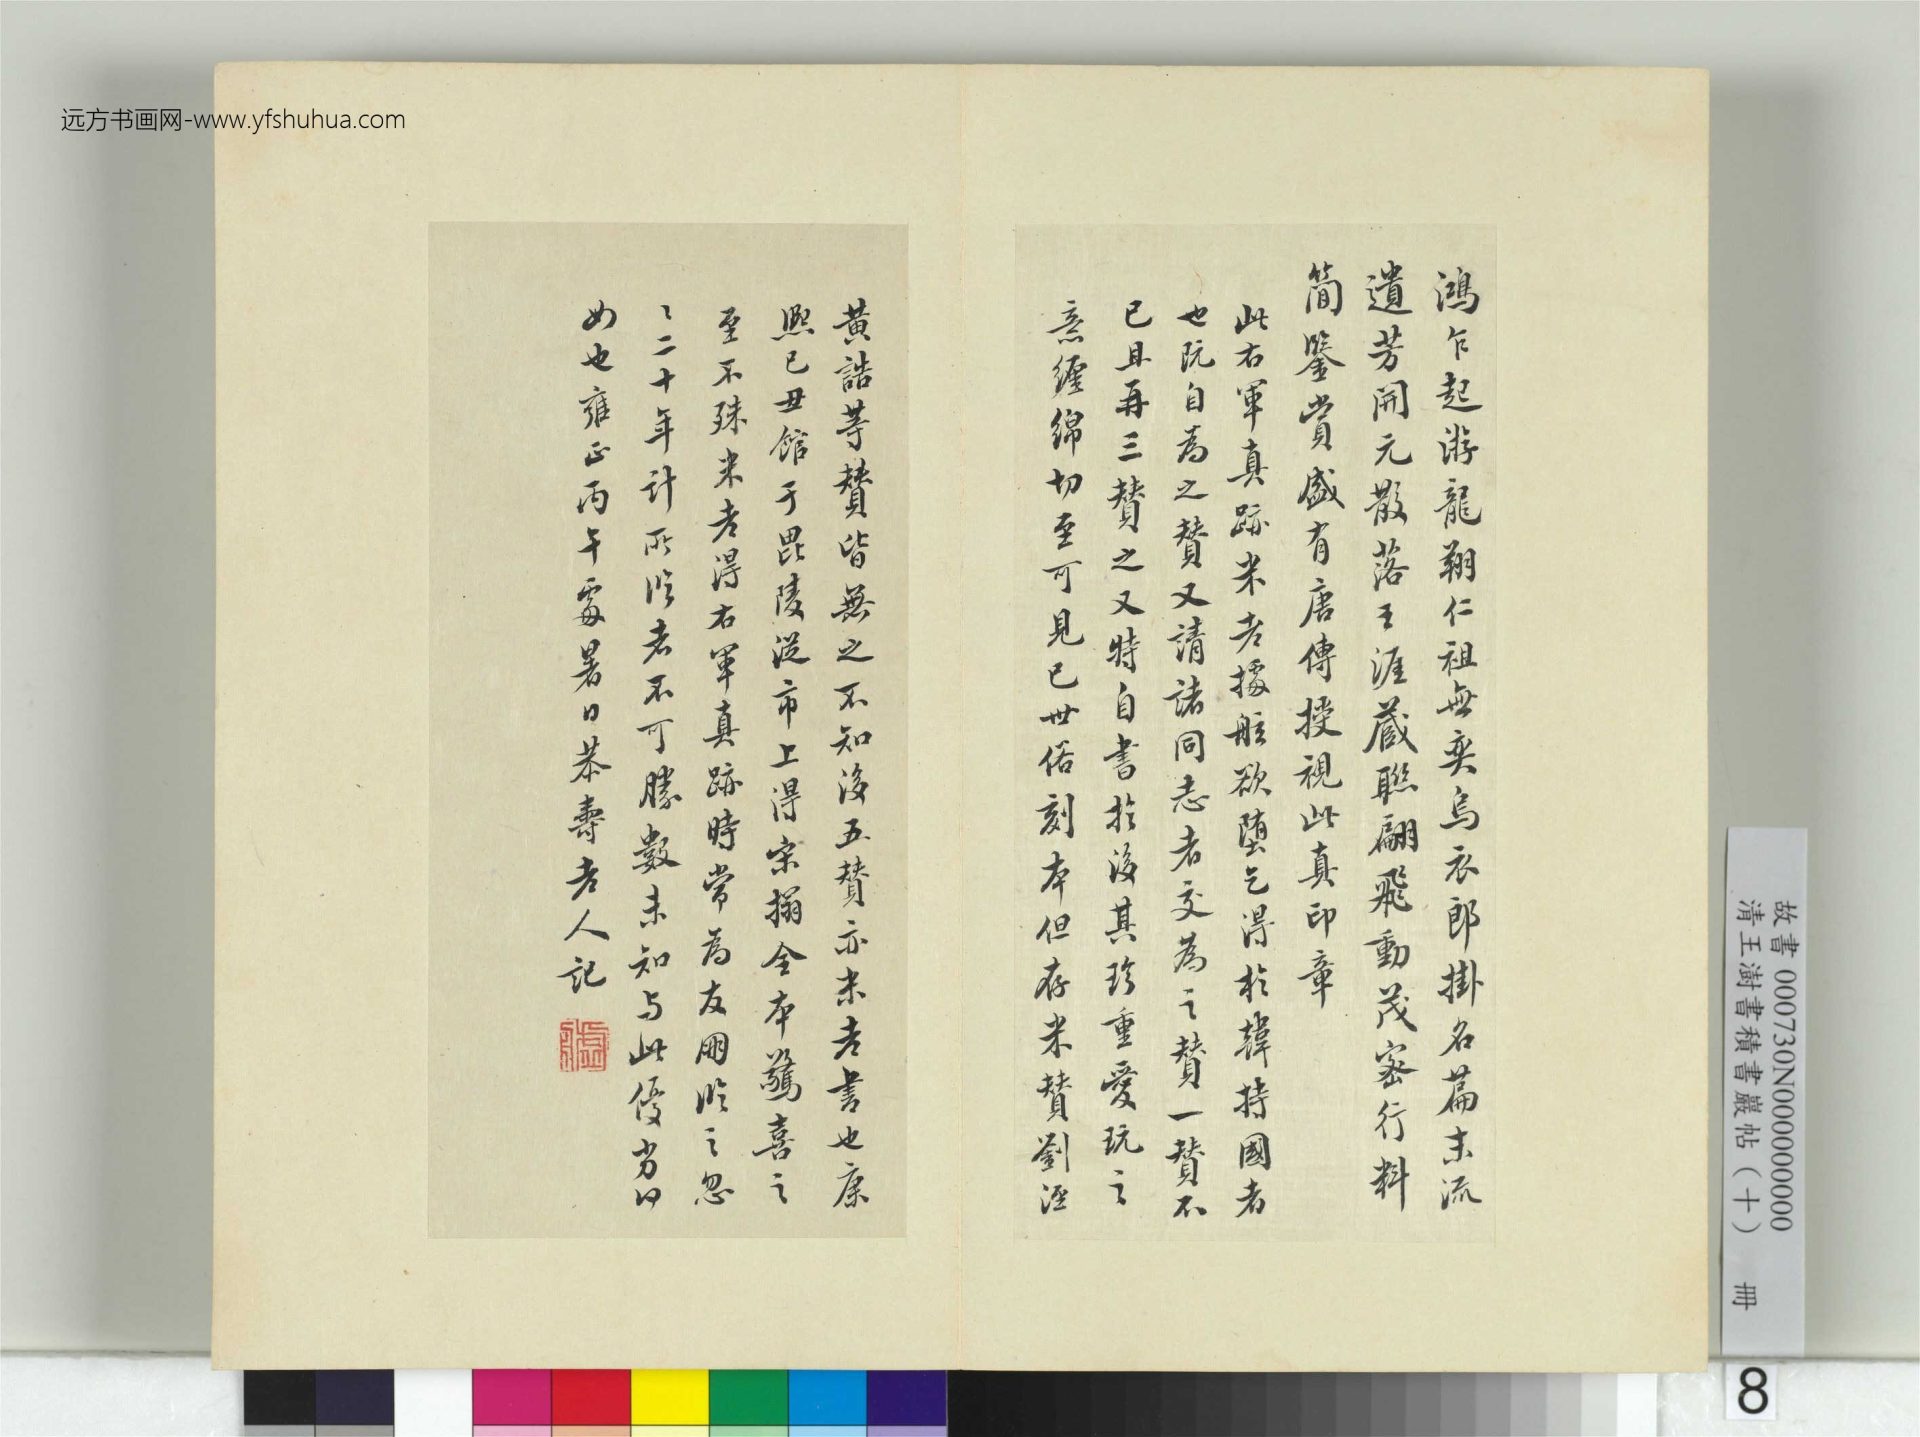 远方书画网-www.yfshuhua.com
鴻乍起游龍翔仁祖無奕烏衣郎掛名篇末流
遺芳開元散落王涯藏聯翩飛動茂密行料
簡鑒賞盛有唐傳授視此真印章
此右軍真跡米老據舷欲墮乞得於韓持國者
也既自為之贊又請諸同志者交為之贊一贊不
已且再三贊之又特自書於後其珍重愛玩之
意纏綿切至可見已世俗刻本但存米贊劉涇
黃誥等贊皆無之不知後五贊亦米老書也康
熙己丑館于毘陵從市上得宋搨全本驚喜之
至不殊米老得右軍真跡時常為友朋臨之忽
〻二十年計所臨者不可勝數未知与此優劣何
如也雍正丙午處暑日恭壽老人記
故書 000730N000000000
清王澍書積書巖帖（十） 冊
8